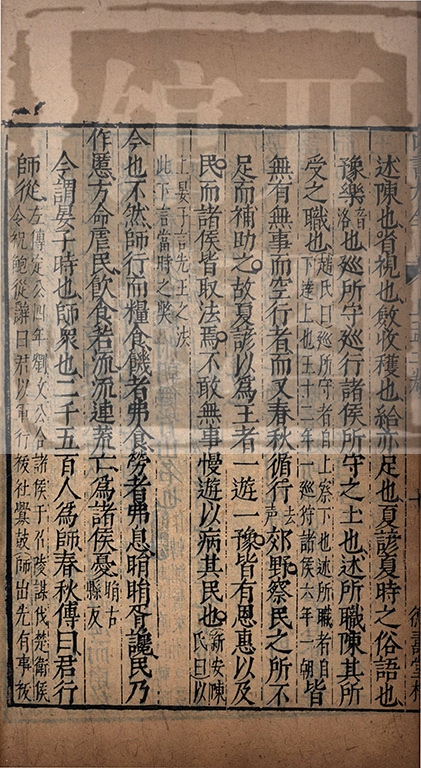 述陳也省視也斂收穫也給亦足也夏諺夏時之俗語也
豫樂音洛也巡所守巡行諸侯所守之土也述所職陳其所
受之職也趙氏曰巡所守者自上察下也述所職者自下達上也王十二年一巡狩諸侯六年一朝皆
無有無事而空行者而又春秋循行去聲郊野察民之所不
足而補助之故夏諺以為王者一遊一豫皆有恩惠以及
民而諸侯皆取法焉不敢無事慢遊以病其民也新安陳氏曰以
上晏子言先王之法
此下言當時之弊
今也不然師行而糧食飢者弗食勞者弗息睊睊胥讒民乃
作慝方命虐民飲食若流流連荒亡為諸侯憂睊古縣反
今謂晏子時也師眾也二千五百人為師春秋傳曰君行
師從左傳定公四年劉文公合諸侯于召陵謀伐楚衛侯
令祝鮀從辭曰君以軍行祓社釁鼓師出先有事祓